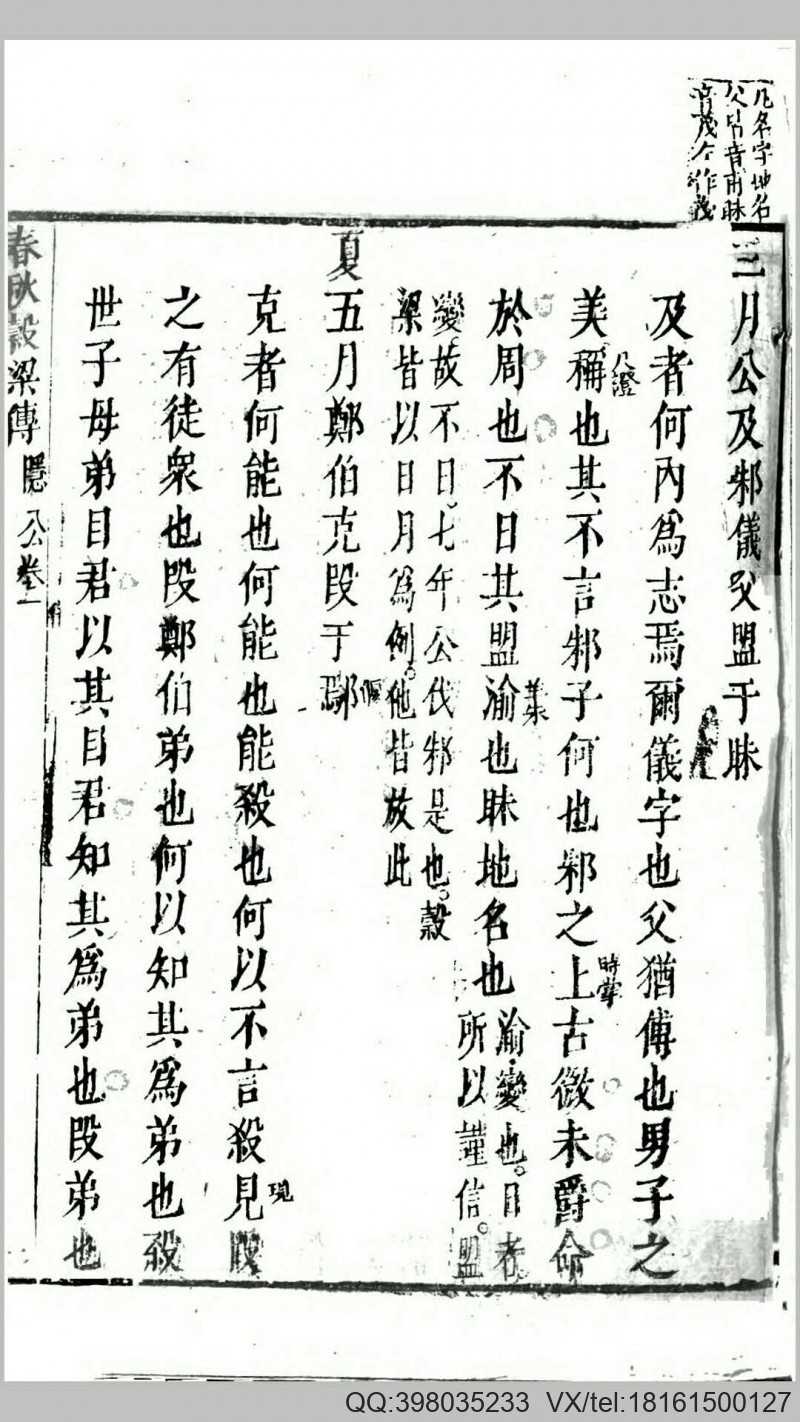 凡名字地名
父甫音甫眜
音茂今作蔑
三月公及邾儀父盟于眜
及者何內爲志焉爾儀字也父猶傅也男子之
美稱也其不言邾子何也邾之上古微未爵命
尺證
時掌
於周也不日其盟渝也眜地名也
羊朱
渝變也。日者
所以謹信。盟
變。故不日。七年公伐邾是也。穀
梁皆以日月爲例。他皆放此
夏五月鄭伯克段于鄢
克者何能也何能也能殺也何以不言殺見段
現
之有徒衆也段鄭伯弟也何以知其爲弟也殺
世子母弟目君以其目君知其爲弟也段弟也
春秋穀梁傳 隱公卷一
QQ:398035233 VX/tel:18161500127